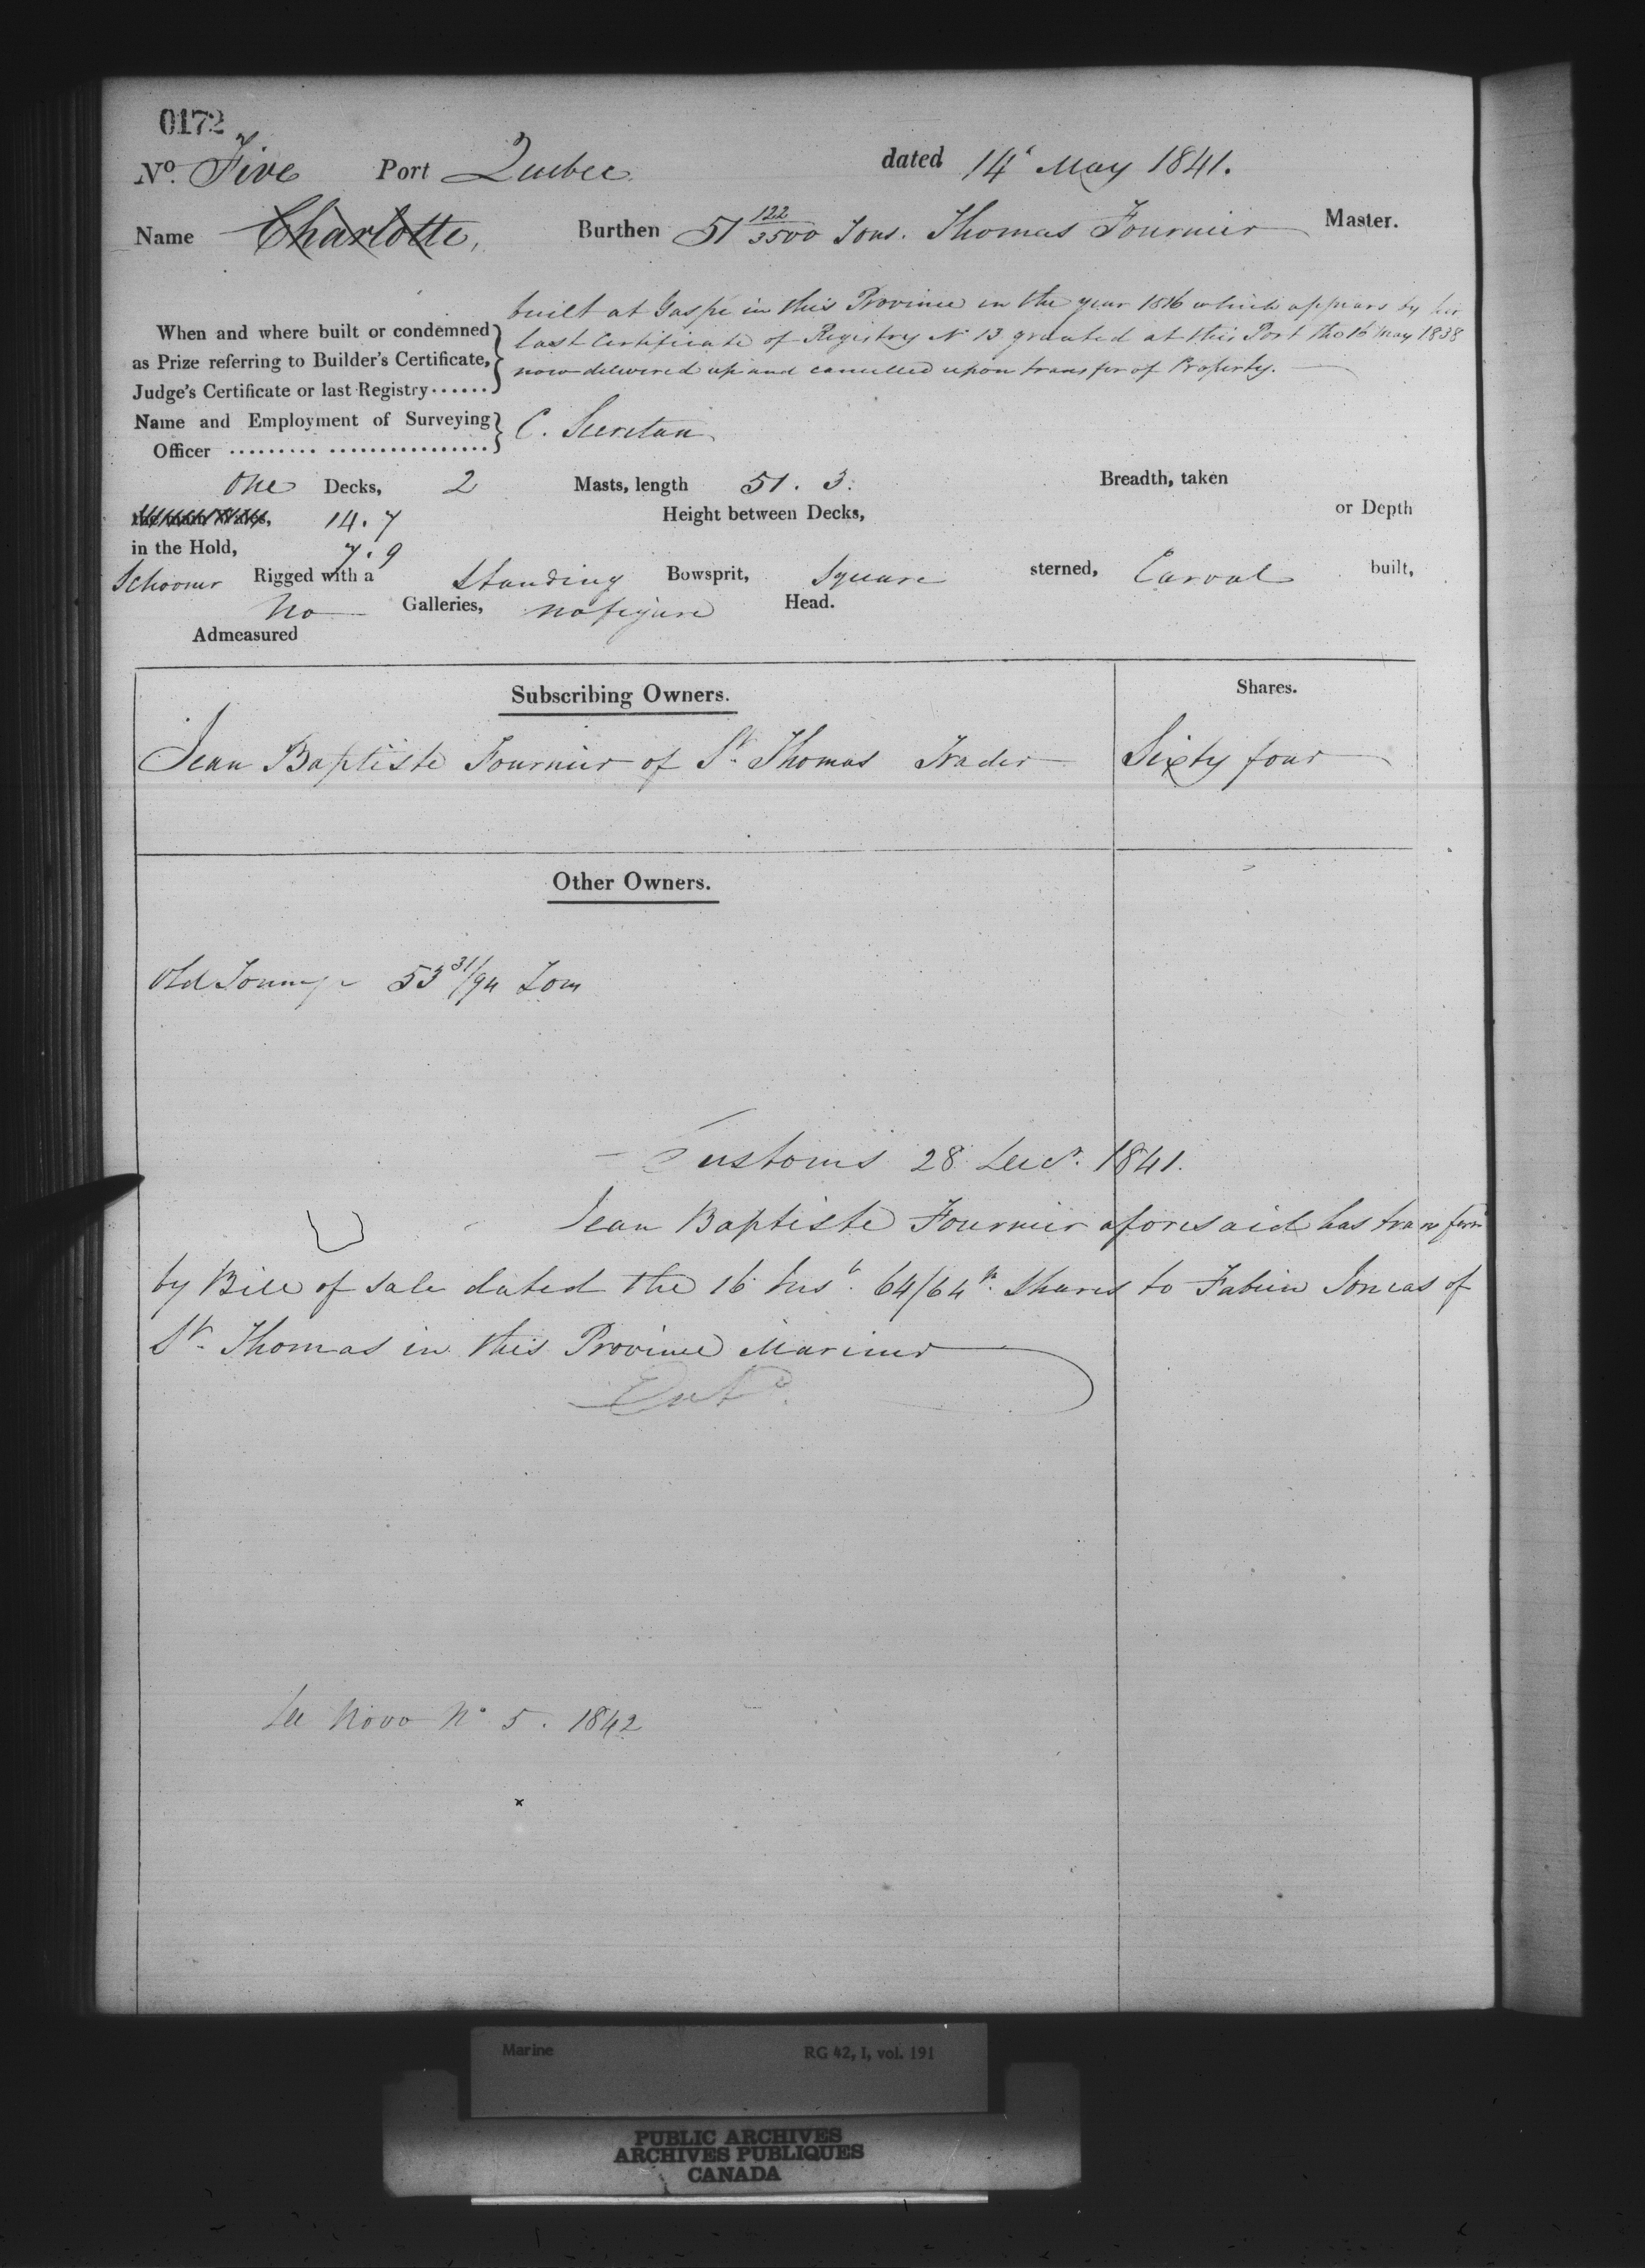 0172
No. Five Port Quebec dated 14 May 1841.
Name Charlotte, Burthen 51 122/3500 Tons. Thomas Fournier Master.
built at Gaspé in this Province in the year 1816 which appears by her
When and where built or condemned
last Certificate of Registry No 13 granted at this Port the 16 May 1838
as Prize referring to Builder's Certificate,
now delivered up and cancelled upon transfer of Property.
Judge's Certificate or last Registry......
Name and Employment of Surveying
C. Secretan
Officer ......... ................
One Decks, 2 Masts, length 51. 3. Breadth, taken
14. 7 Height between Decks, or Depth
in the Hold, 7. 9
Schooner Rigged with a Standing Bowsprit, Square sterned, Carvel built,
No Galleries, no figure Head.
Admeasured
Subscribing Owners. Shares.
Jean Baptiste Fournier of St. Thomas Trader Sixty four
Other Owners.
Old Tonnage 53 31/94 Tons
Customs 28 Decr. 1841.
Jean Baptiste Fournier aforesaid has transferr
by Bill of Sale dated the 16 Inst. 64/64 Shares to Fabien Joncas of
St. Thomas in this Province Mariner
De Novo No 5. 1842
x
Marine RG 42, I, vol. 191
PUBLIC ARCHIVES
ARCHIVES PUBLIQUES
CANADA